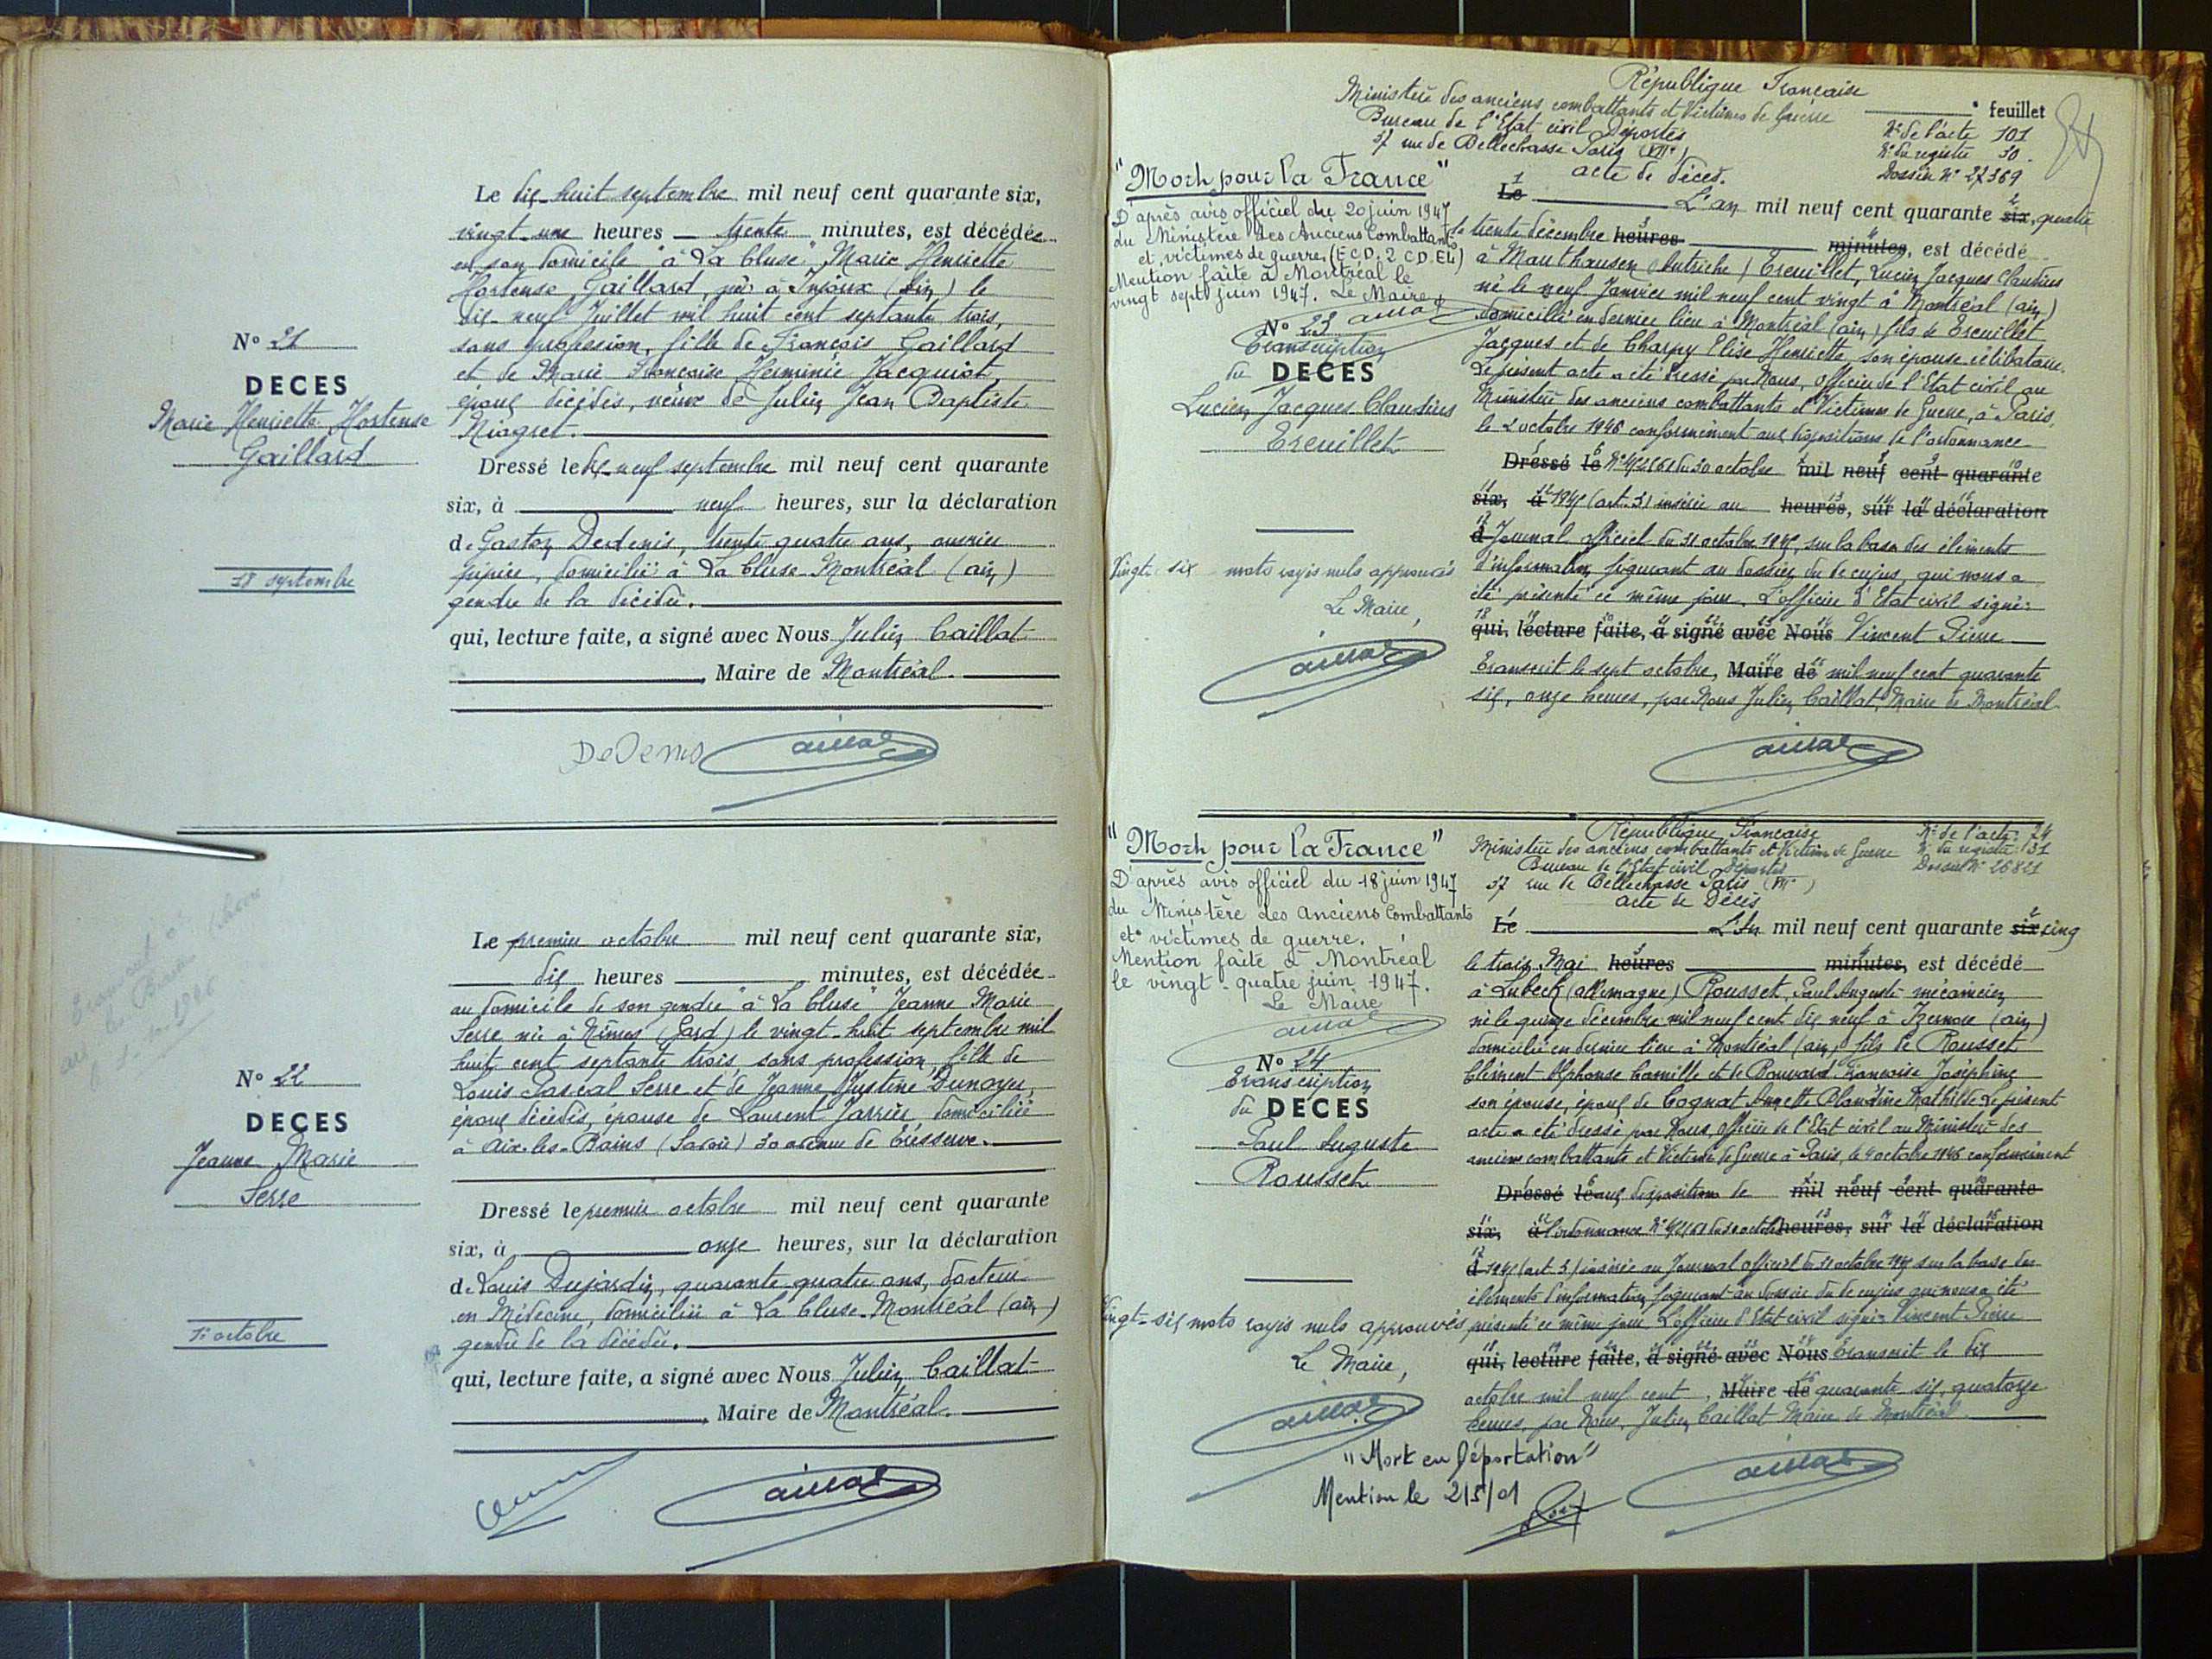 N° 21
DECES
Marie Henriette Hortense
Gaillard
18 septembre
Le dix-huit septembre mil neuf cent quarante six,
vingt-une heures trente minutes, est décédée
en son domicile "à La Cluse" Marie Henriette
Hortense Gaillard, née à Injoux (Ain) le
dix-neuf Juillet mil huit cent septante trois,
sans profession, fille de François Gaillard
et de Marie Françoise Herminie Jacquiot,
époux décédés, veuve de Julien Jean Baptiste
Niogret.
Dressé le dix-neuf septembre mil neuf cent quarante
six, à neuf heures, sur la déclaration
de Gaston Dedenis, trente quatre ans, ouvrier
pipier, domicilié à La Cluse-Montréal (Ain)
gendre de la décédée.
qui, lecture faite, a signé avec Nous Julien Caillat
Maire de Montréal.
DeDenis
N° 22
DECES
Jeanne Marie
Serre
1er octobre
Le premier octobre mil neuf cent quarante six,
dix heures minutes, est décédée
au domicile de son gendre "à La Cluse" Jeanne Marie
Serre née à Nîmes (Gard) le vingt-huit septembre mil
huit cent septante trois, sans profession, fille de
Louis Pascal Serre et de Jeanne Justine Dunoyer,
époux décédés, épouse de Laurent Jarrier, domiciliée
à Aix-les-Bains (Savoie) 30 avenue de Tresserve.
Dressé le premier octobre mil neuf cent quarante
six, à onze heures, sur la déclaration
de Louis Dujardin, quarante quatre ans, docteur
en Médecine, domicilié à La Cluse-Montréal (Ain)
gendre de la décédée.
qui, lecture faite, a signé avec Nous Julien Caillat
Maire de Montréal.
République Française
Ministère des anciens combattants et Victimes de Guerre
Bureau de l'Etat civil Déportés
37 rue de Bellechasse Paris (VIIe)
acte de décès.
feuillet
N° de l'acte 101
N° du registre 30.
Dossier N° 27369
"Mort pour la France"
D'après avis officiel du 20 juin 1947
du Ministère des Anciens Combattants
et victimes de guerre (E.C.D. 2 C.D. E4)
Mention faite à Montréal le
vingt sept juin 1947. Le Maire
N° 23
Transcription
du DECES
Lucien Jacques Claudius
Treuillet
Vingt six mots rayés nuls approuvés
Le Maire,
Le L'an mil neuf cent quarante six, quatre
le trente décembre heures minutes, est décédé
à Mauthausen (Autriche) Treuillet, Lucien Jacques Claudius
né le neuf Janvier mil neuf cent vingt à Montréal (Ain)
domicilié en dernier lieu à Montréal (Ain) fils de Treuillet
Jacques et de Charpy Elise Henriette, son épouse. célibataire.
Le présent acte a été dressé par Nous, officier de l'Etat civil au
Ministère des anciens combattants et Victimes de Guerre, à Paris,
le 2 octobre 1946 conformément aux dispositions de l'ordonnance
Dressé le N° 45/2561 du 30 octobre mil neuf cent quarante
six, à 1945 (art. 5) insérée au heures, sur la déclaration
d Journal officiel du 31 octobre 1945, sur la base des éléments
d'information figurant au dossier du de cujus, qui nous a
été présenté ce même jour. L'officier d'Etat civil signé:
qui, lecture faite, a signé avec Nous Vincent Pierre
Transcrit le sept octobre, Maire de mil neuf cent quarante
six, onze heures, par Nous Julien Caillat, Maire de Montréal
"Mort pour la France"
D'après avis officiel du 18 juin 1947
du Ministère des Anciens Combattants
et victimes de guerre.
Mention faite à Montréal
le vingt-quatre juin 1947.
Le Maire
N° 24
Transcription
du DECES
Paul Auguste
Rousset
Vingt-six mots rayés nuls approuvés
Le Maire,
République Française
Ministère des anciens combattants et Victimes de Guerre
Bureau de l'Etat civil Déportés
37 rue de Bellechasse Paris (VIIe)
acte de Décès
N° de l'acte: 24
N° du registre: 31
Dossier N° 26821
Le L'An mil neuf cent quarante six cinq
le trois Mai heures minutes, est décédé
à Lubeck (Allemagne) Rousset, Paul Auguste mécanicien
né le quinze décembre mil neuf cent dix neuf à Izernore (Ain)
domicilié en dernier lieu à Montréal (Ain) fils de Rousset
Clément Alphonse Camille et de Bouvard Françoise Joséphine
son épouse, époux de Cognat Annette Blandine Mathilde. Le présent
acte a été dressé par Nous, officier de l'Etat civil au Ministère des
anciens combattants et Victimes de Guerre à Paris, le 4 octobre 1946 conformément
Dressé le aux dispositions de mil neuf cent quarante
six, à l'ordonnance N° 45/2561 du 30 octobre heures, sur la déclaration
d 1945 (art. 5) insérée au Journal officiel du 31 octobre 1945 sur la base des
éléments d'information figurant au dossier du de cujus qui nous a été
présenté ce même jour. L'officier d'Etat civil signé: Vincent Pierre
qui, lecture faite, a signé avec Nous Transcrit le dix
octobre mil neuf cent, Maire de quarante six, quatorze
heures, par Nous, Julien Caillat Maire de Montréal.
"Mort en Déportation"
Mention le 2/5/01